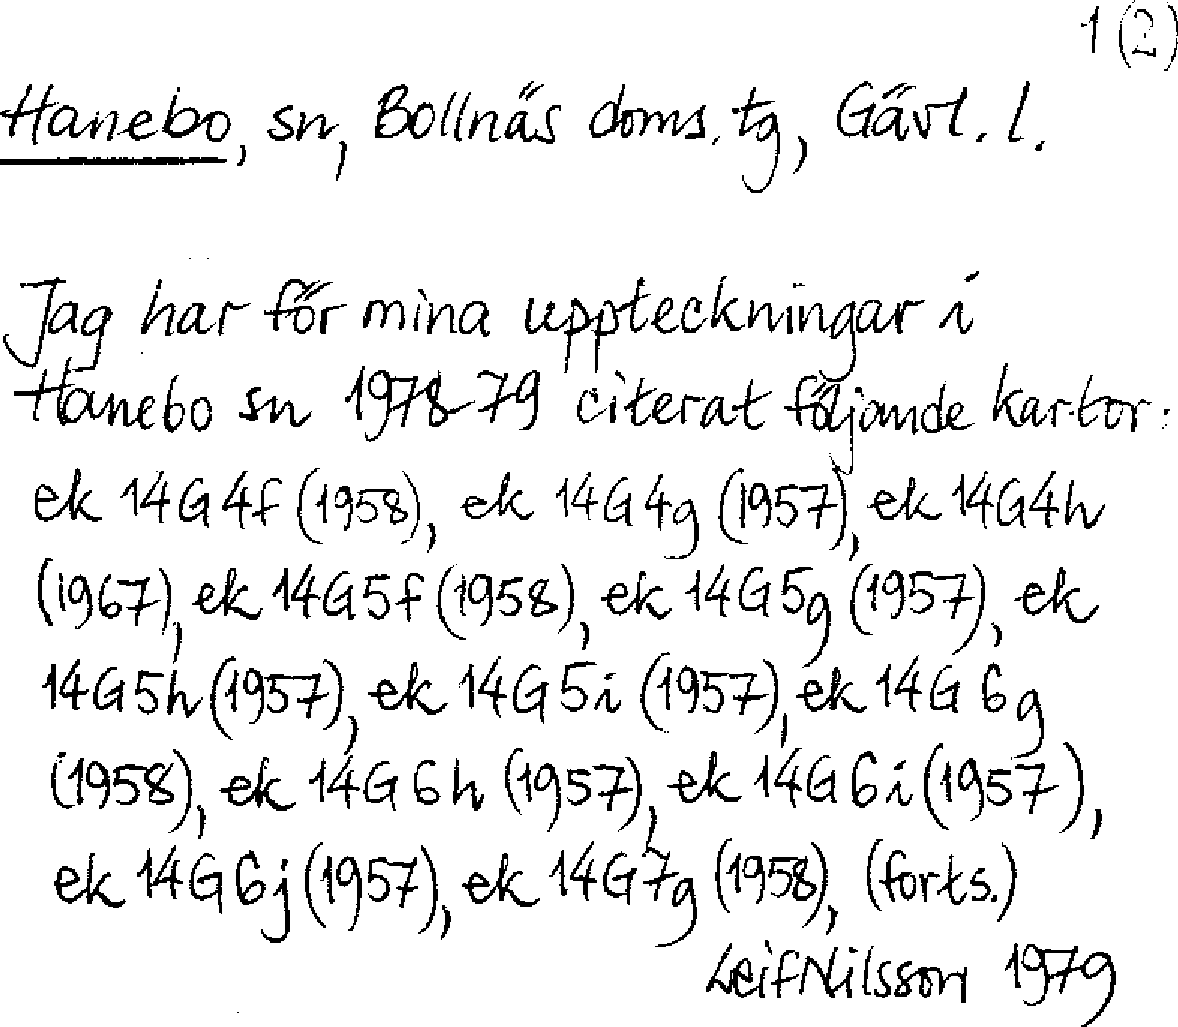 1 (2)
Hanebo, sn, Bollnäs doms. tg, Gävl. l.
Jag har för mina uppteckningar i
Hanebo sn 1978-79 citerat följande kartor:
ek 14G4f (1958), ek 14G4g (1957), ek 14G4h
(1967), ek 14G5f (1958), ek 14G5g (1957), ek
14G5h (1957), ek 14G5i (1957), ek 14G6g
(1958), ek 14G6h (1957), ek 14G6i (1957),
ek 14G6j (1957), ek 14G7g (1958), (forts.)
Leif Nilsson 1979